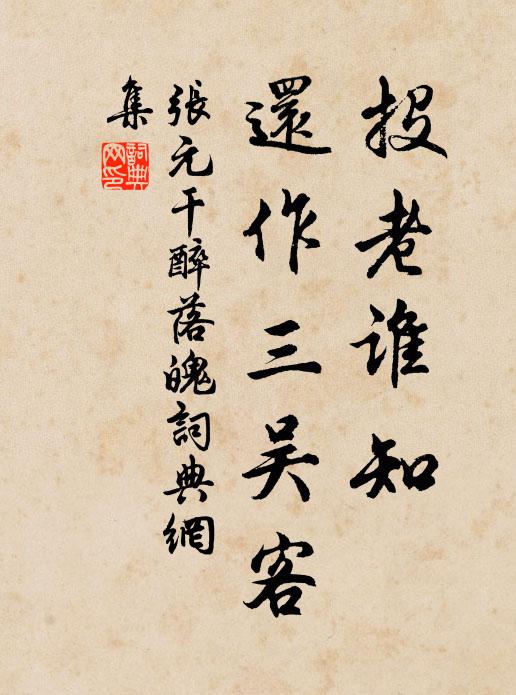 投老誰知
還作三吴客
張元干醉落魄詞典網
集
詞典
网印